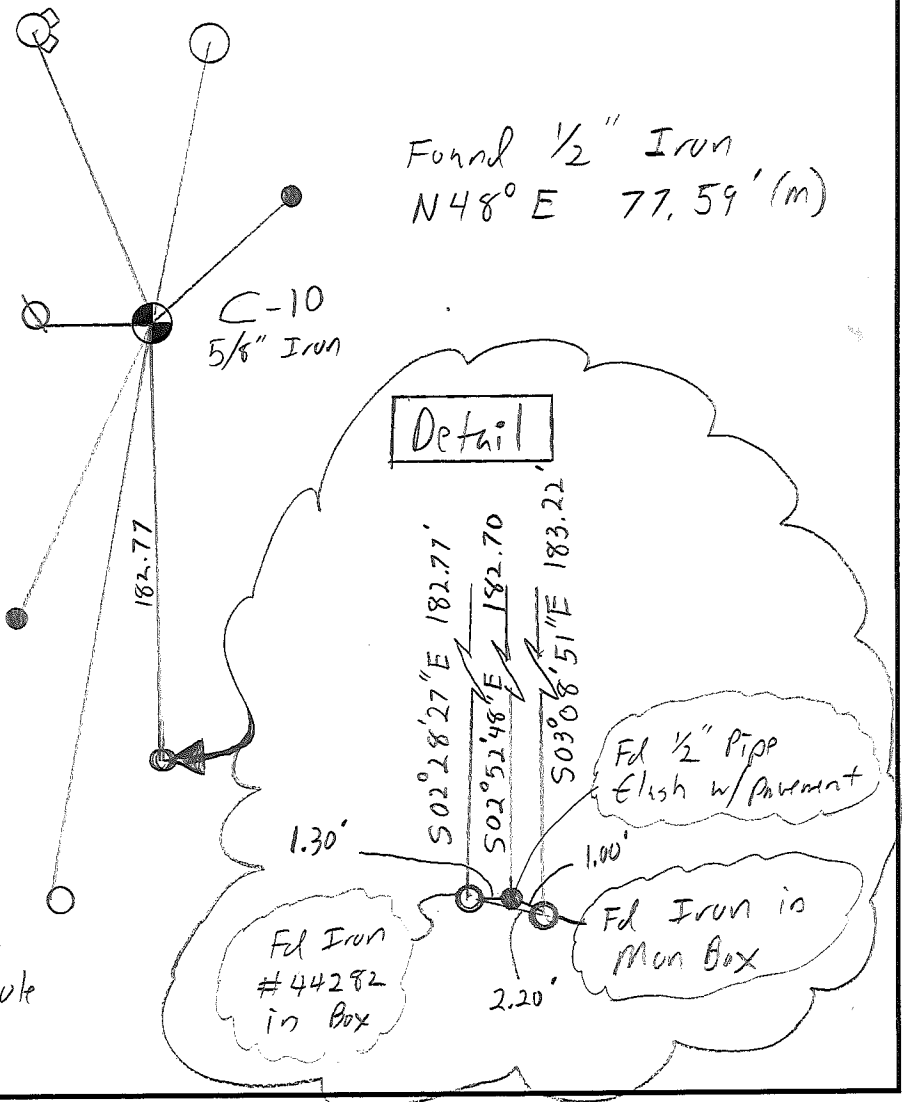 Found 1/2" Iron
N48° E 77.59' (m)
C-10
5/8" Iron
Detail
182.77
S02°28'27"E 182.77'
S02°52'48"E 182.70
S03°08'51"E 183.22'
Fd 1/2" Pipe
flush w/ pavement
1.30'
1.00'
Fd Iron
#44282
in Box
Fd Iron in
Mon Box
2.20'